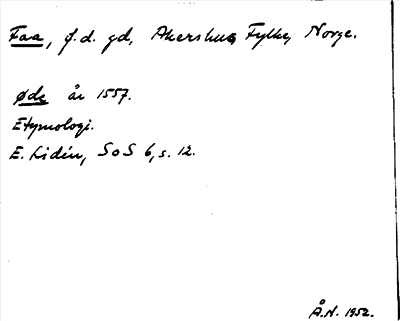 Faa, f.d. gd, Akershus Fylke, Norge.
Øde år 1557.
Etymologi.
E. Lidén, SoS 6, s. 12.
Å.N. 1952.